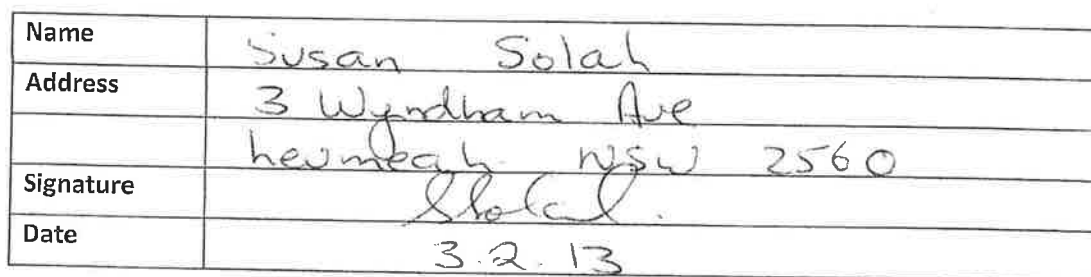 Name Susan Solah
Address 3 Wyndham Ave
NSW 2560
Signature
Date 3.2.13